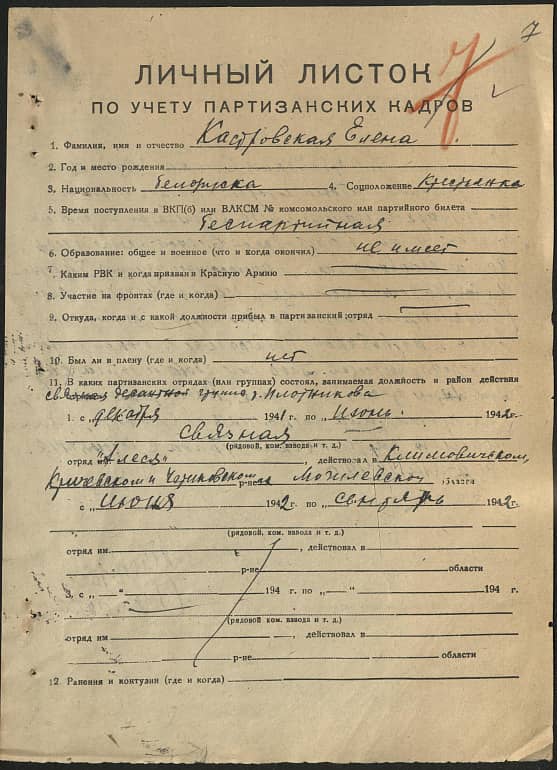 7
7
ЛИЧНЫЙ ЛИСТОК
ПО УЧЕТУ ПАРТИЗАНСКИХ КАДРОВ
1. Фамилия, имя и отчество Кастровская Елена
2. Год и место рождения
3. Национальность белоруска 4. Соцположение Крестьянка
5. Время поступления в ВКП(б) или ВЛКСМ № комсомольского или партийного билета
беспартийная
6. Образование: общее и военное (что и когда окончил) не имеет
7. Каким РВК и когда призван в Красную Армию
8. Участие на фронтах (где и когда)
9. Откуда, когда и с какой должности прибыл в партизанский отряд
10. Был ли в плену (где и когда) нет
11. В каких партизанских отрядах (или группах) состоял, занимаемая должность и район действия
связная десантной группы т. Плотникова
1. с „ декабря 1941 г. по „ июнь 1942 г.
связная
(рядовой, ком. взвода и т. д.)
отряд „Алеся" , действовал в Климовичском,
Кричевском и Чериковском р-не Могилевской области
с „ июня 1942 г. по „ сентябрь 1942 г.
(рядовой, ком. взвода и т. д.)
отряд им. , действовал в
р-не области
3. с „—" 194 г. по „—" 194 г.
(рядовой, ком. взвода и т. д.)
отряд им. , действовал в
р-не области
12. Ранения и контузии (где и когда)